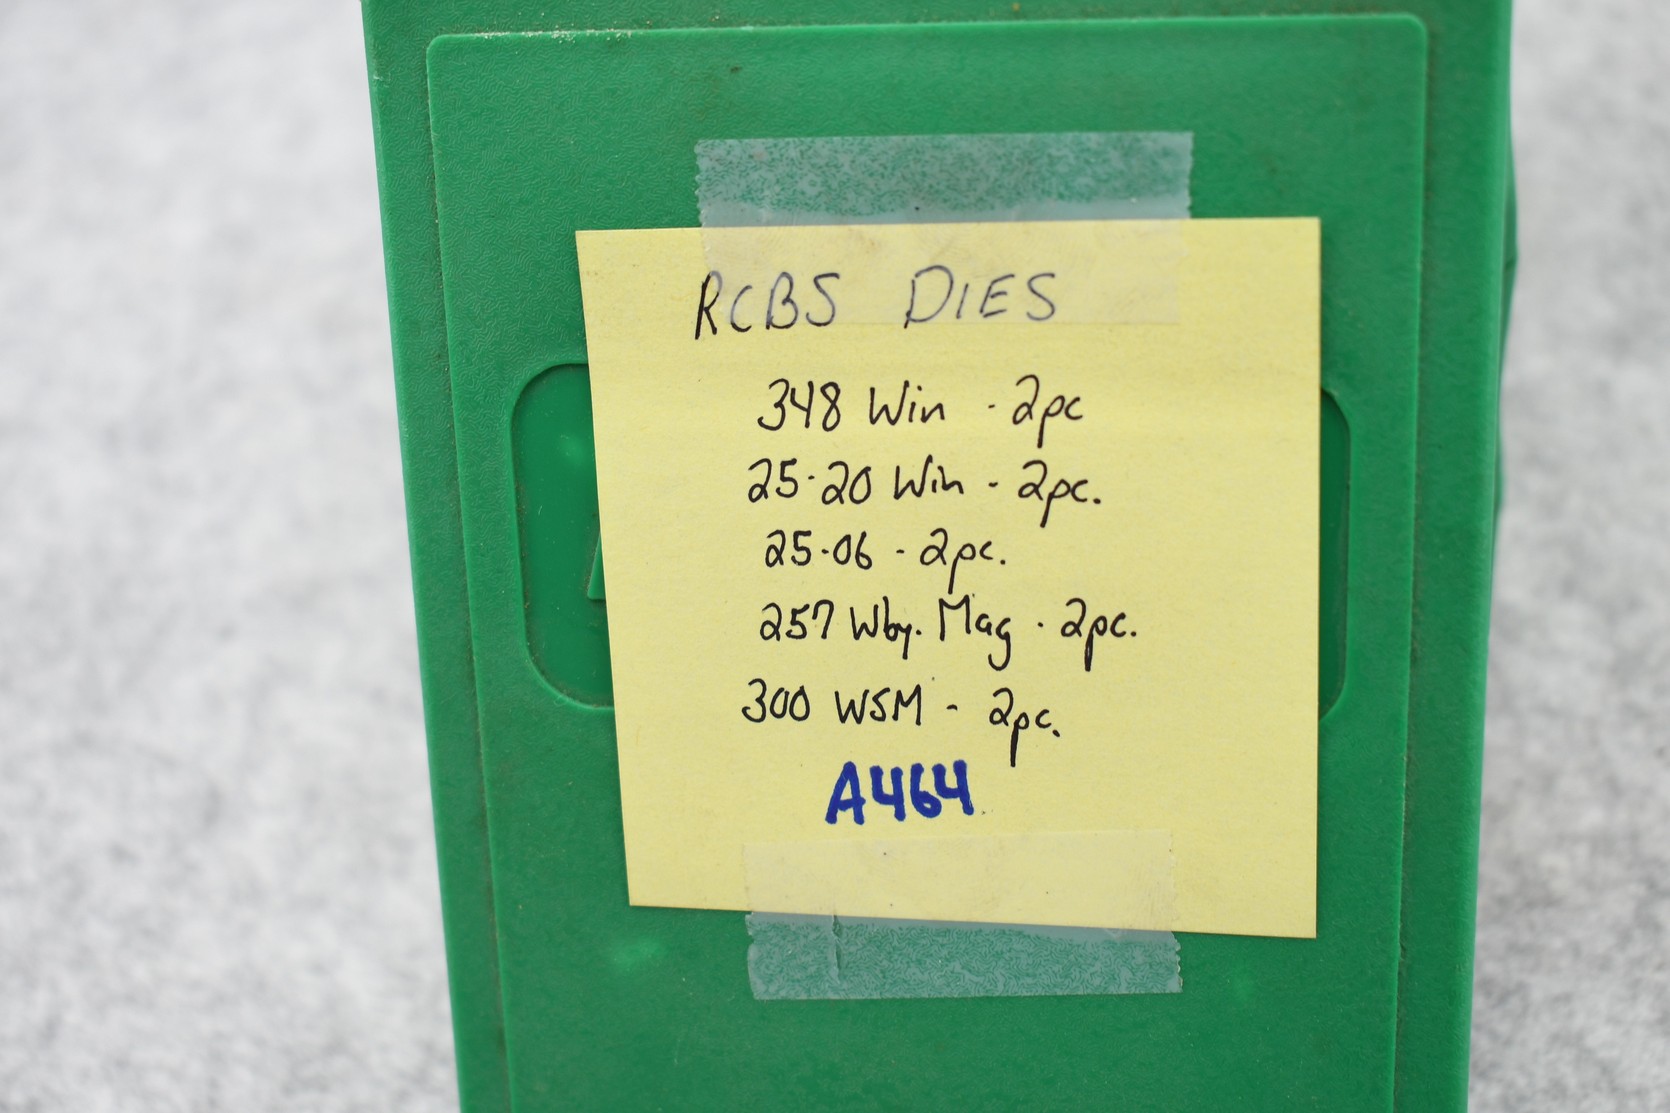 RCBS DIES
348 Win - 2pc
25-20 Win - 2pc.
25-06 - 2pc.
257 Wby. Mag - 2pc.
300 WSM - 2pc.
A464